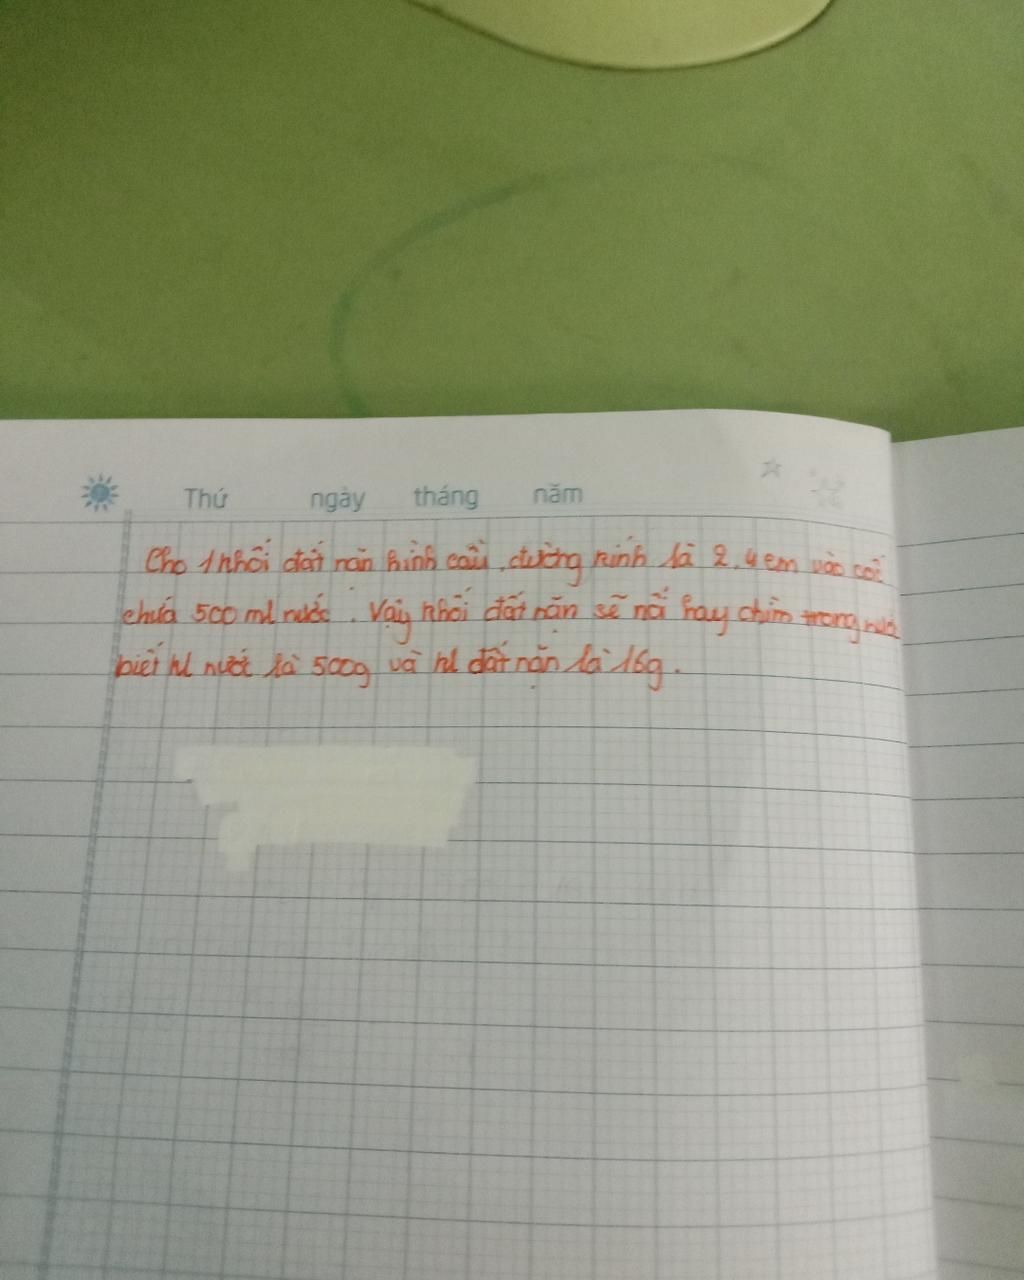 Thứ ngày tháng năm
Cho 1 khối đất nặn hình cầu, đường kính là 2,4 cm vào cốc
chứa 500 ml nước. Vậy khối đất nặn sẽ nổi hay chìm trong nước
biết kl nước là 500g và kl đất nặn là 16g.